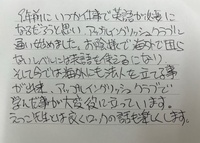 1年前にいつか仕事で英語が必要に
なるだろうと思い アップルイングリッシュクラブに
通い始めました。お陰様で海外で困ら
ないレベルには英語を使えるになり
そして今では海外にも法人を立てる事
が出来、アップルイングリッシュクラブで
学んだ事が大変役に立っています。
先生は良くロックの話も楽しくします。